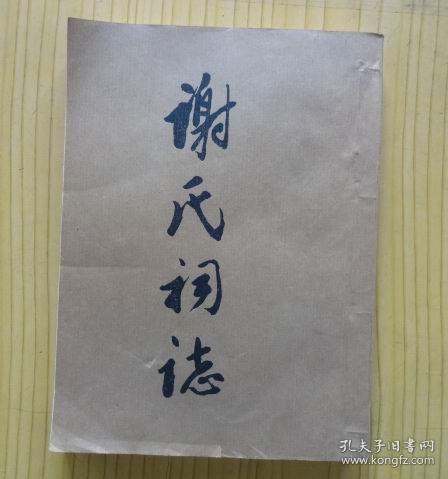 谢氏祠誌
孔夫子旧书网
www.kongfz.com